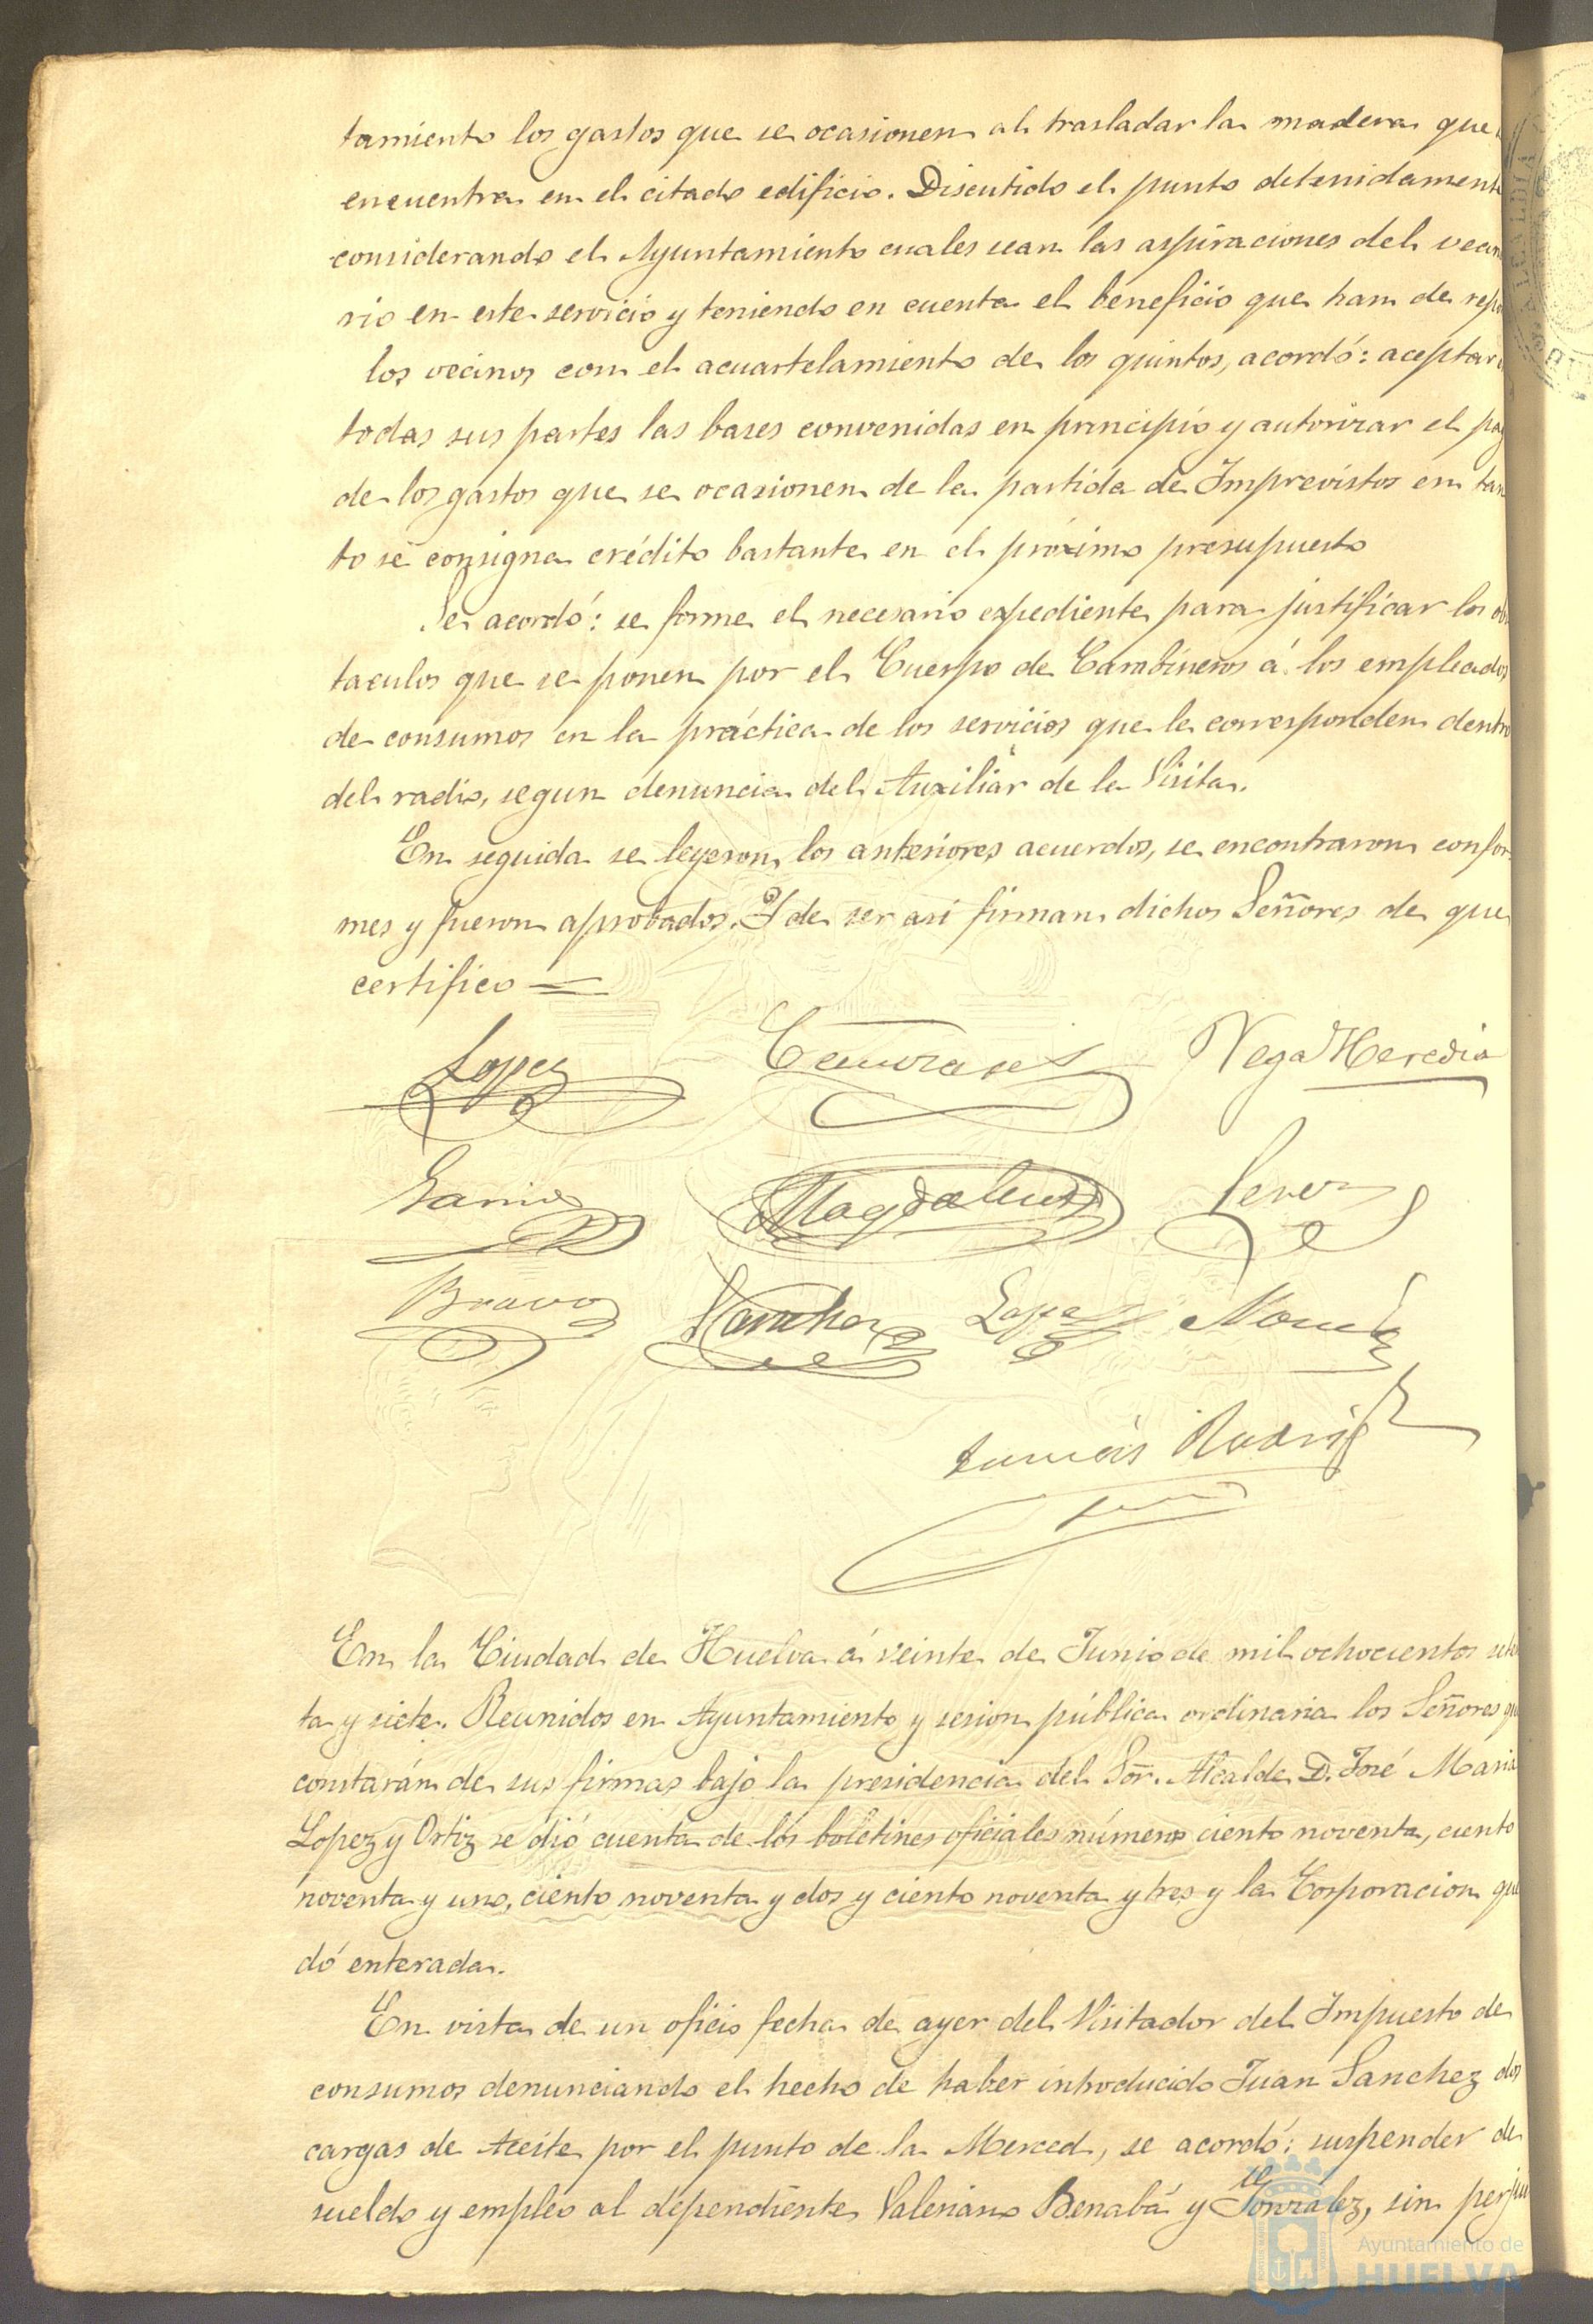 tamiento los gastos que se ocasionen al trasladar la madera que
encuentra en el citado edificio. Discutido el punto detenidament
considerando el Ayuntamiento cuales sean las aspiraciones del vecin
rio en este servicio y teniendo en cuenta el beneficio que han de repo
los vecinos con el acuartelamiento de los quintos, acordó: aceptar
todas sus partes las bases convenidas en principio y autorizar el pag
de los gastos que se ocasionen de la partida de Imprevistos en tan
to se consigna crédito bastante en el próximo presupuesto
Se acordó: se forme el necesario expediente para justificar los obs
taculos que se ponen por el Cuerpo de Carabineros á los empleados
de consumos en la práctica de los servicios que le corresponden dentro
del radio, segun denuncia del Auxiliar de la Visita.
En seguida se leyeron los anteriores acuerdos, se encontraron confor
mes y fueron aprobados. Y de ser asi firman dichos Señores de que
certifico =
Lopez Vega Heredia
Garcia Magdalena Perez
Bravo Sanchez Lopez
Tomás Rodrig
En la Ciudad de Huelva á veinte de Junio de mil ochocientos seten
ta y siete. Reunidos en Ayuntamiento y sesion pública ordinaria los Señores qu
constarán de sus firmas bajo la presidencia del Sor. Alcalde D. José Maria
Lopez y Ortiz se dió cuenta de los boletines oficiales números ciento noventa, ciento
noventa y uno, ciento noventa y dos y ciento noventa y tres y la Corporacion que
dó enterada.
En vista de un oficio fecha de ayer del Visitador del Impuesto de
consumos denunciando el hecho de haber introducido Juan Sanchez dos
cargas de Aceite por el punto de la Merced, se acordó: suspender de
sueldo y empleo al dependiente Valeriano Benabá y Gonzalez, sin perjui
Ayuntamiento de
HUELVA